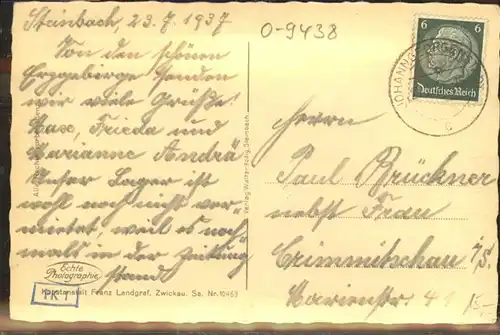 Steinbach, 23.7.1937
Von den schönen
Erzgebirge senden
wir viele Grüße!
Max, Frieda und
Marianne Andrä
Unser Lager ist
wohl noch nicht ver-
mietet, weil es noch
mals in der Zeitung
stand.
O-9438
6 6
Deutsches Reich
Herrn
Paul Brückner
nebst Frau
Crimmitschau i/S.
Marienstr. 41
15,-
Verlag Walter Fichtig, Steinbach
Echte
Photographie
TK 1
Kunstanstalt Franz Landgraf, Zwickau. Sa. Nr. 10463